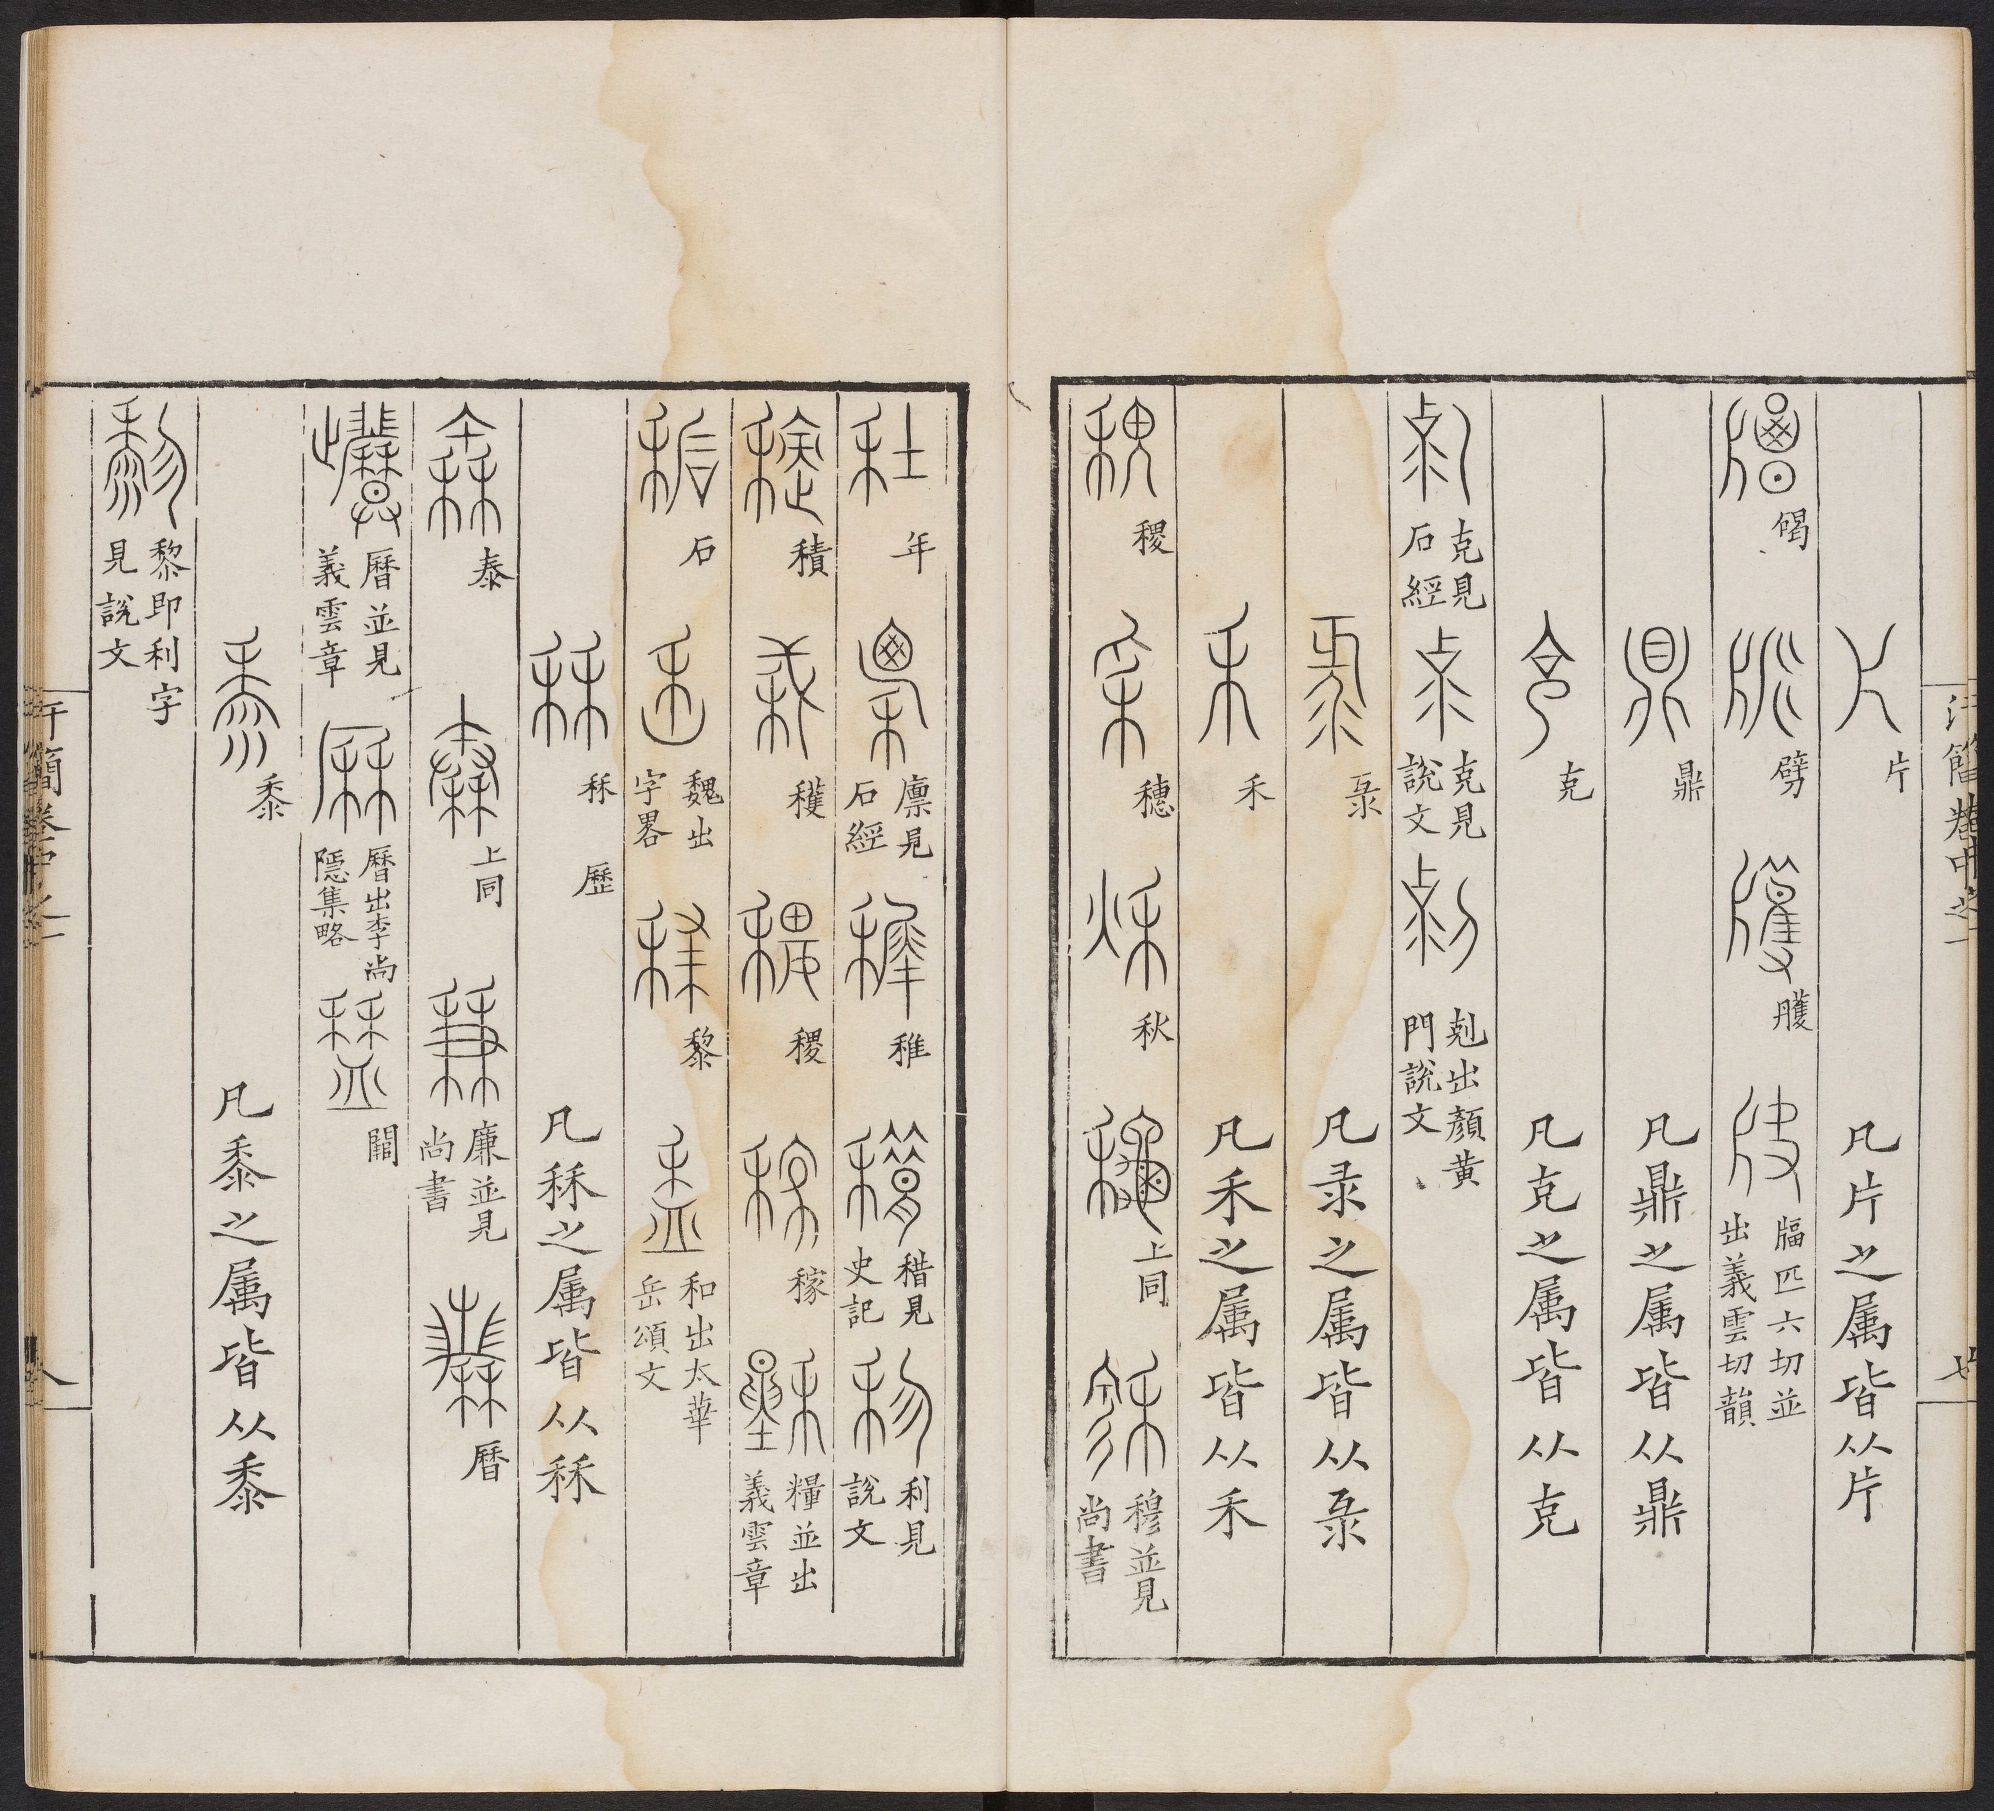 汗簡卷中之一
七
片 凡片之属皆从片
劈 臒 牑匹六切並出義雲切韻
鼎 凡鼎之属皆从鼎
克 凡克之属皆从克
克見石經 克見說文 剋出顏黄門說文
彔 凡彔之属皆从彔
禾 凡禾之属皆从禾
稷 穗 秋 上同 穆並見尚書
年 廪見石經 稚 稓見史記 利見說文
積 穫 稷 稼 糧並出義雲章
石 魏出字畧 黎 和出太華岳頌文
秝 歷 凡秝之属皆从秝
泰 上同 廉並見尚書 曆
曆並見義雲章 曆出李尚隱集略 闢
黍 凡黍之属皆从黍
黎即利字見說文
汗簡卷中之一
八